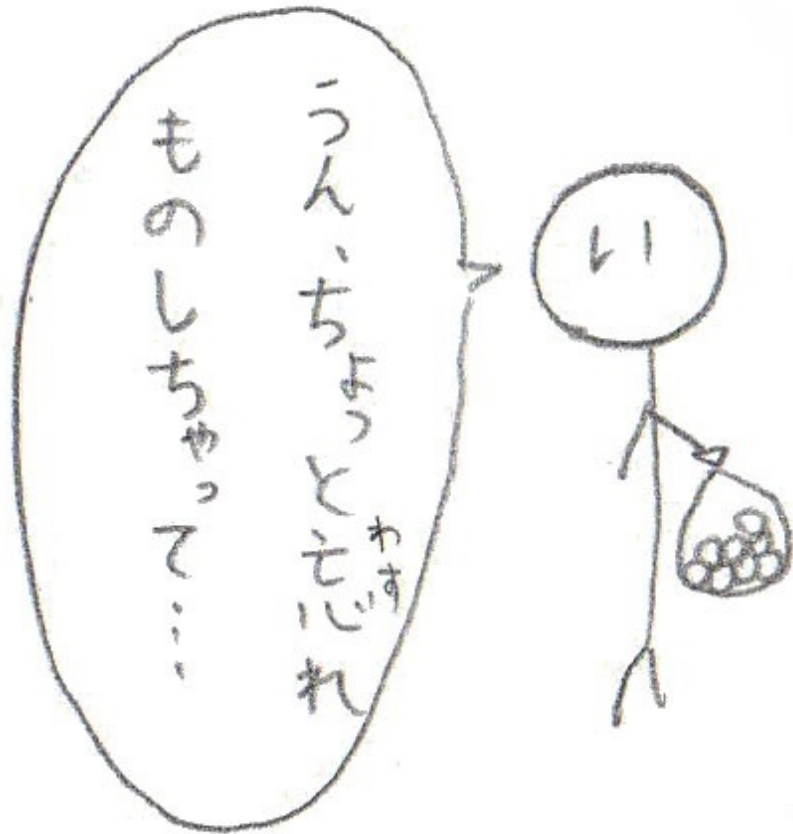 うん、ちょっと忘れ
わす
ものしちゃって…
い